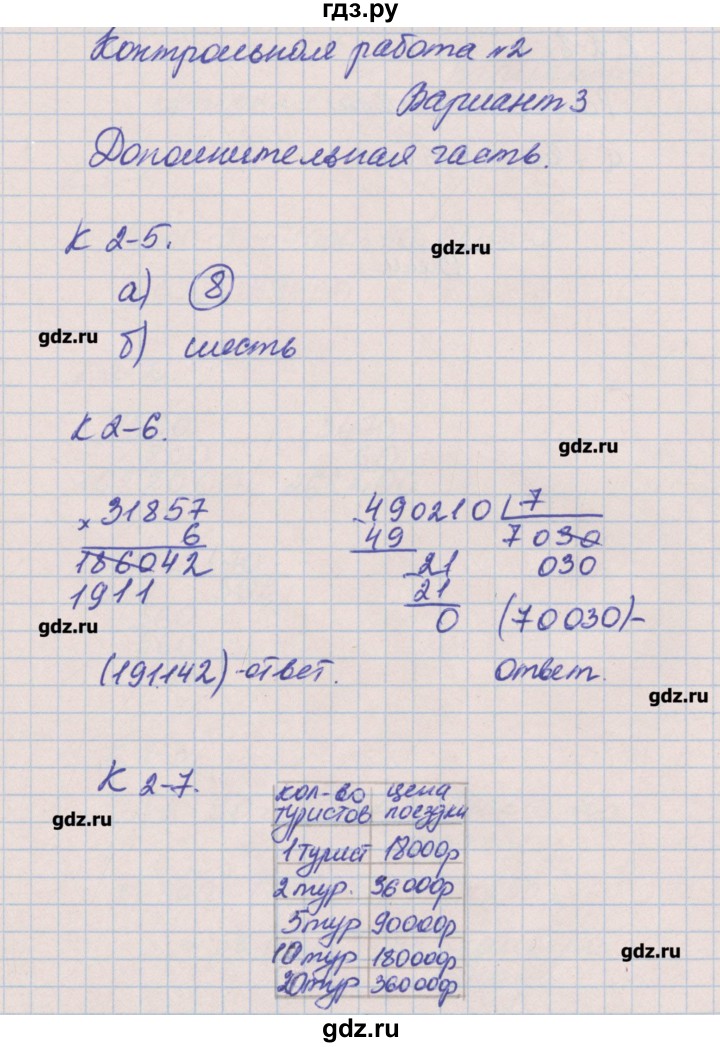 гдз.ру
Контрольная работа №2
Вариант 3
Дополнительная часть.
К 2-5.
gdz.ru
а) 8
gdz.ru
б) шесть
К 2-6.
gdz.ru
× 31857
6
186042
1911
(191142) - ответ.
490210 7
49 7030
21 030
21
0 (70030) -
ответ.
gdz.ru
gdz.ru
К 2-7.
gdz.ru
кол-во туристов цена поездки
1 турист 18000р
2 тур. 36000р
5 тур 90000р
10 тур 180000р
20 тур 360000р
gdz.ru
gdz.ru